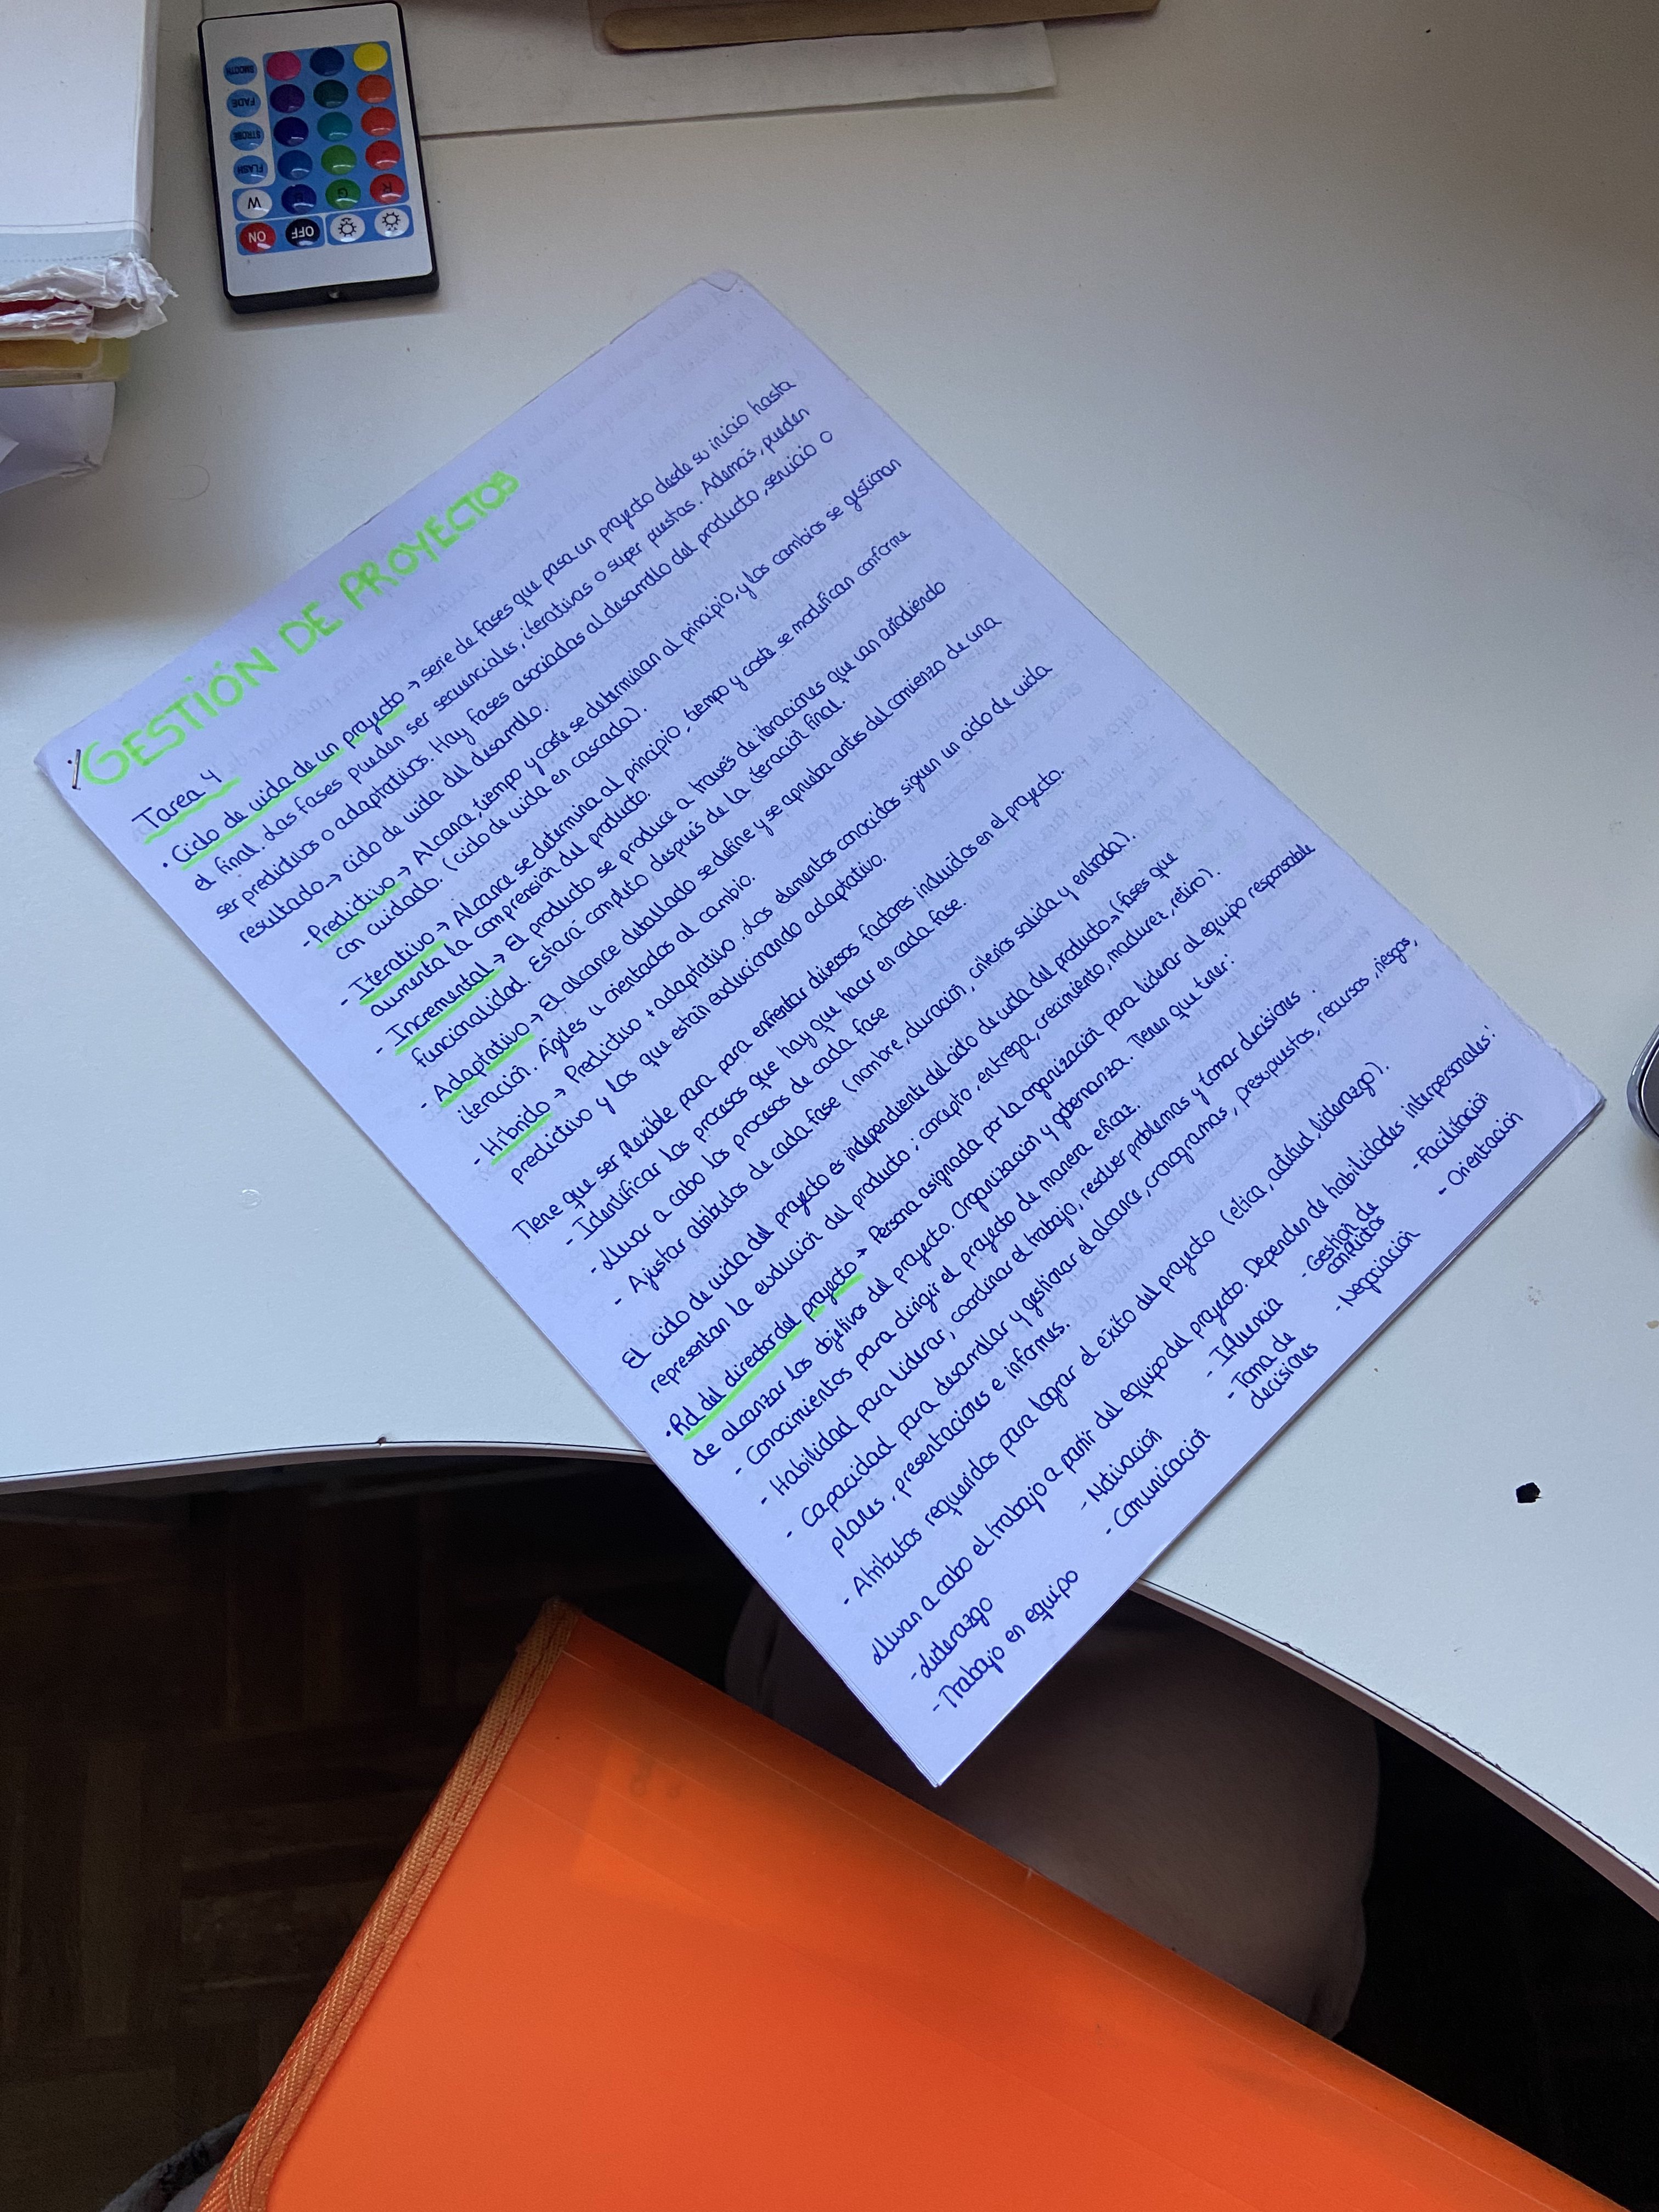 SMOOTH
FADE
STROBE
FLASH
W
G
R
ON
OFF
GESTIÓN DE PROYECTOS
Tarea 4
· Ciclo de vida de un proyecto → serie de fases que pasa un proyecto desde su inicio hasta
el final. Las fases pueden ser secuenciales, iterativas o super puestas. Además, pueden
ser predictivos o adaptativos. Hay fases asociadas al desarrollo del producto, servicio o
resultado → ciclo de vida del desarrollo.
- Predictivo → Alcance, tiempo y coste se determinan al principio, y los cambios se gestionan
con cuidado. (ciclo de vida en cascada).
- Iterativo → Alcance se determina al principio, tiempo y coste se modifican conforme
aumenta la comprensión del producto.
- Incremental → El producto se produce a través de iteraciones que van añadiendo
funcionalidad. Estará completo después de la iteración final.
- Adaptativo → El alcance detallado se define y se aprueba antes del comienzo de una
iteración. Ágiles u orientados al cambio.
- Híbrido → Predictivo + adaptativo. Los elementos conocidos siguen un ciclo de vida
predictivo y los que están evolucionando adaptativo.
Tiene que ser flexible para para enfrentar diversos factores incluidos en el proyecto.
- Identificar los procesos que hay que hacer en cada fase.
- Llevar a cabo los procesos de cada fase
- Ajustar atributos de cada fase (nombre, duración, criterios salida y entrada).
El ciclo de vida del proyecto es independiente del ciclo de vida del producto → (fases que
representan la evolución del producto; concepto, entrega, crecimiento, madurez, retiro).
· Rol del director del proyecto → Persona asignada por la organización para liderar al equipo responsable
de alcanzar los objetivos del proyecto. Organización y gobernanza. Tienen que tener:
- Conocimientos para dirigir el proyecto de manera eficaz.
- Habilidad para liderar, coordinar el trabajo, resolver problemas y tomar decisiones.
- Capacidad para desarrollar y gestionar el alcance, cronogramas, presupuestos, recursos, riesgos,
planes, presentaciones e informes.
- Atributos requeridos para lograr el éxito del proyecto (ética, actitud, liderazgo).
Llevan a cabo el trabajo a partir del equipo del proyecto. Dependen de habilidades interpersonales:
- Liderazgo
- Trabajo en equipo
- Motivación
- Comunicación
- Influencia
- Toma de
decisiones
- Gestión de
conflictos
- Negociación
- Facilitación
- Orientación